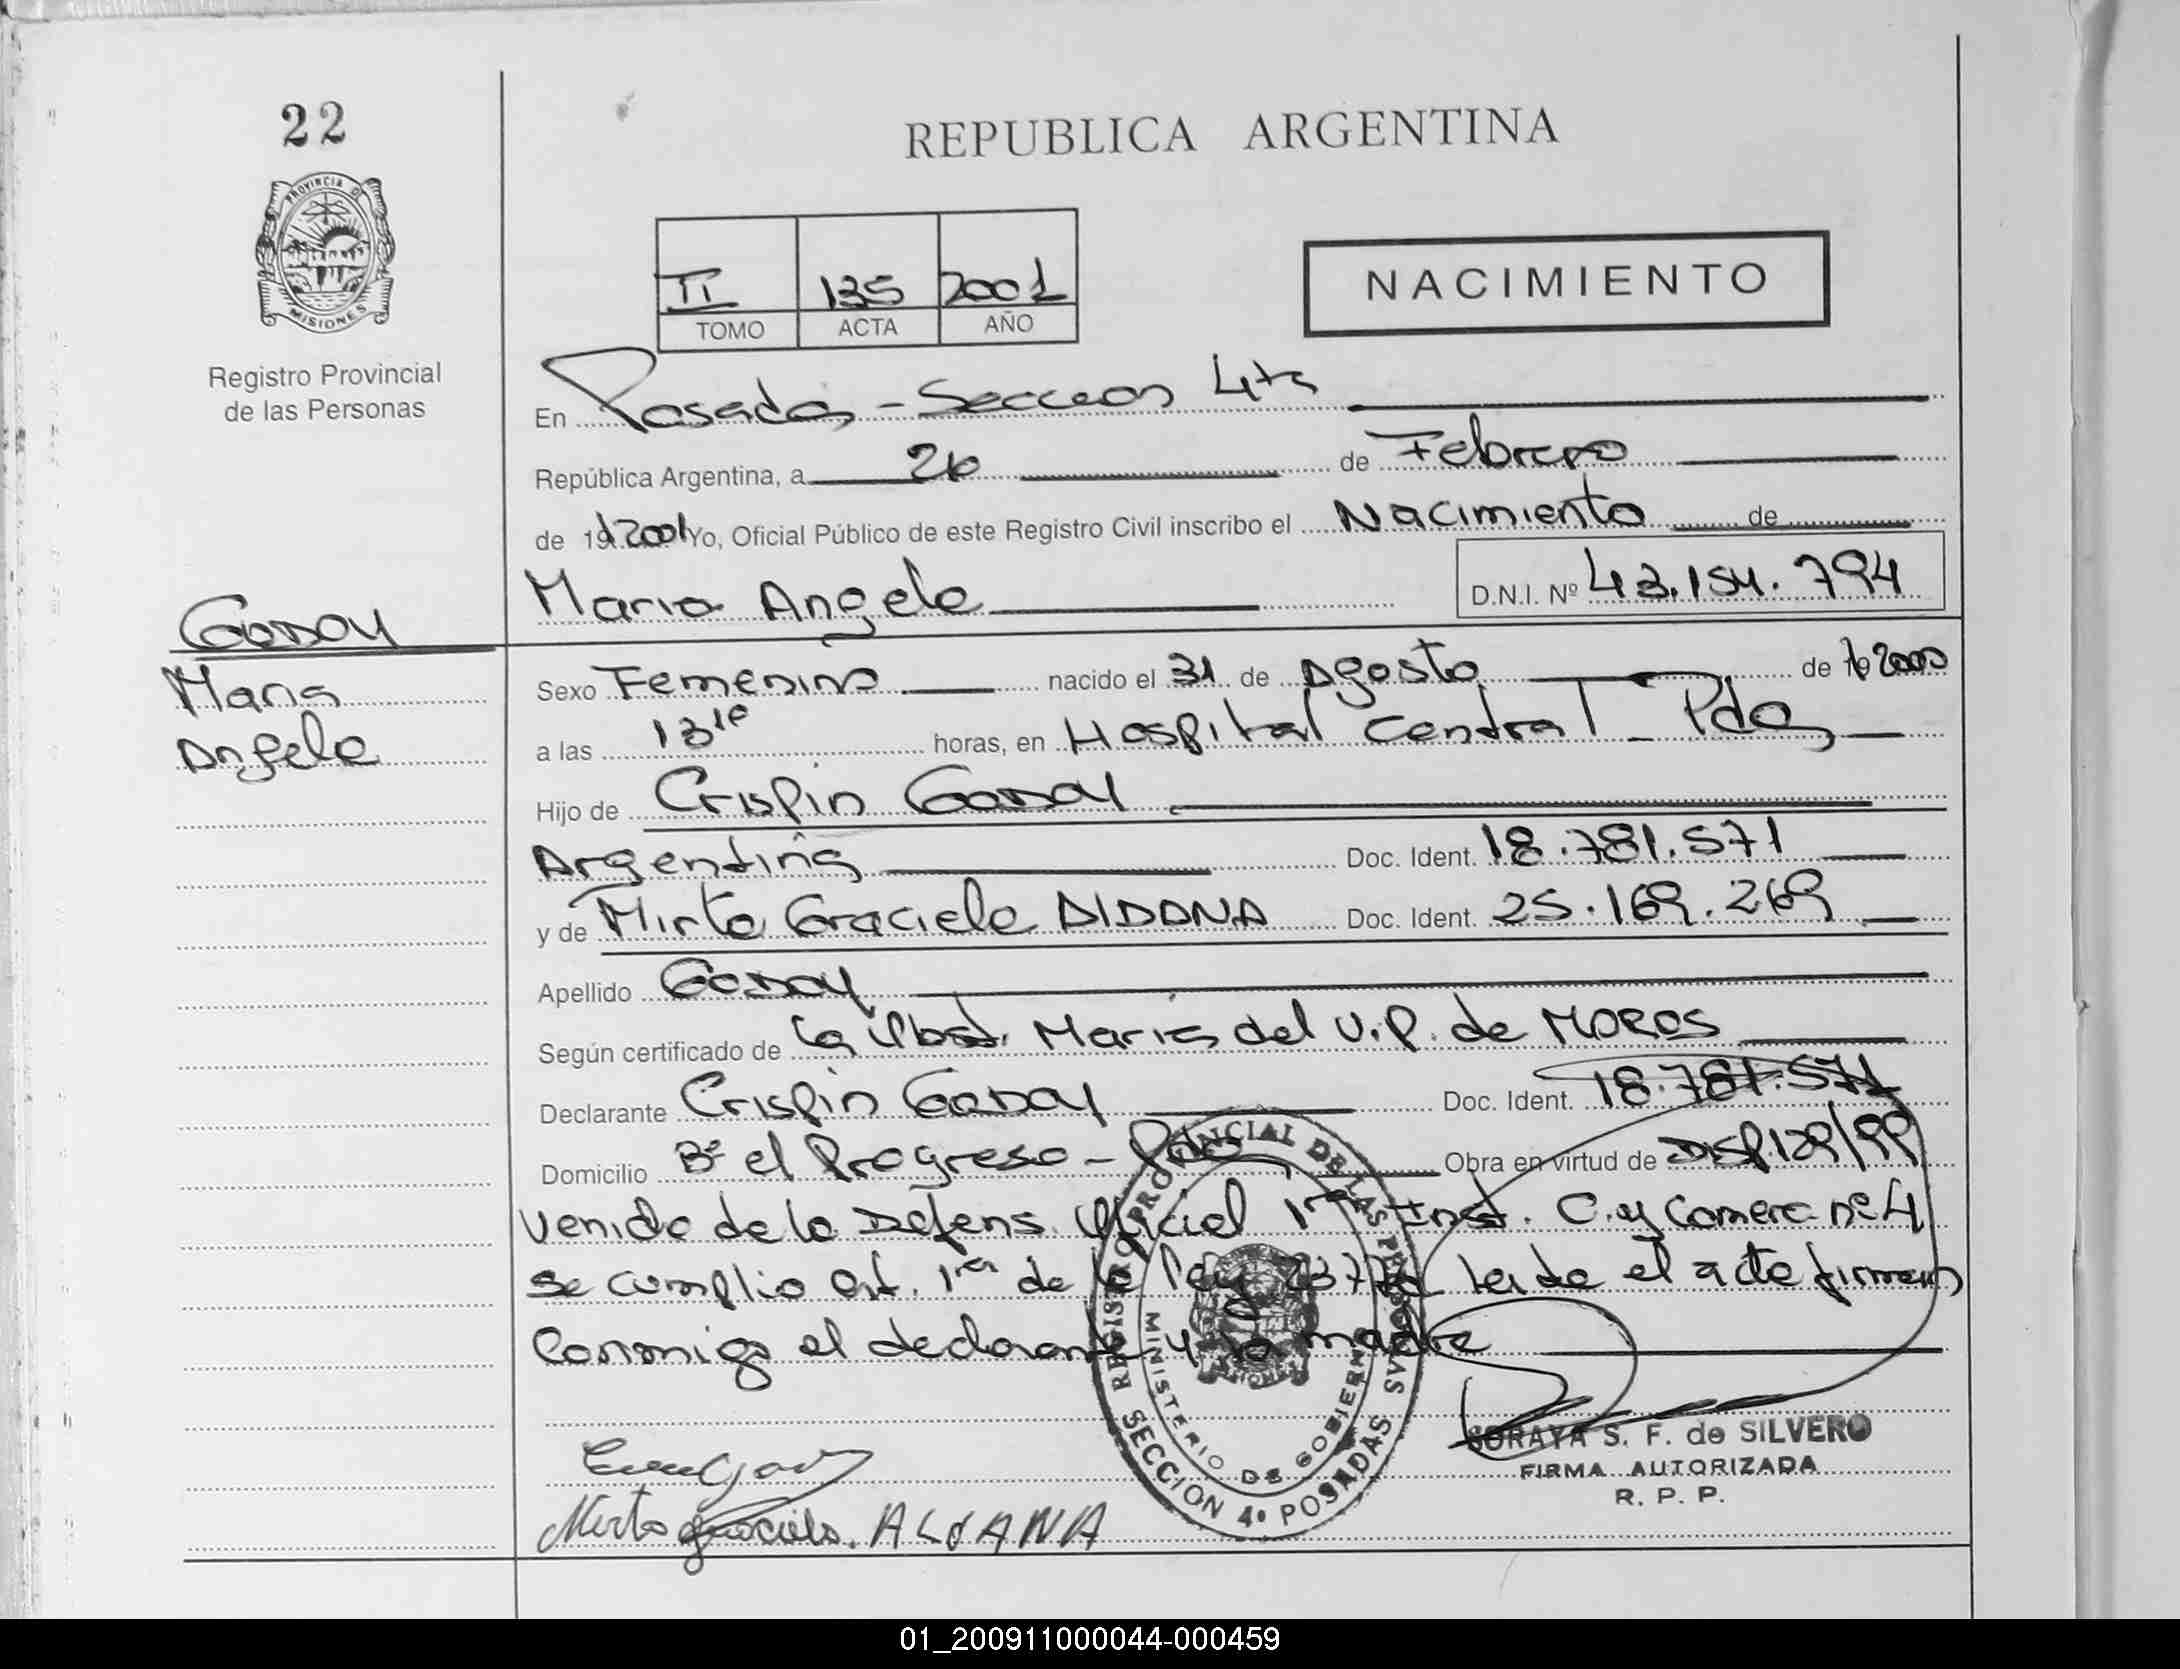 22
REPUBLICA ARGENTINA
PROVINCIA D
MISIONES
Registro Provincial
de las Personas
II 135 2001
TOMO ACTA AÑO
NACIMIENTO
En Posadas - Seccion 4ta
República Argentina, a 26 de Febrero
de 19 2001 Yo, Oficial Público de este Registro Civil inscribo el Nacimiento de
Maria Angela D.N.I. Nº 43.154.794
GODOY
Maria
Angela
Sexo Femenino nacido el 31 de Agosto de 19 2000
a las 13 horas, en Hospital Central - Pdas
Hijo de Crispin GODOY
Argentina Doc. Ident. 18.781.571
y de Mirta Graciela Doc. Ident. 25.169.269
Apellido GODOY
Según certificado de la Obst. Maria del V.P. de MOROS
Declarante Crispin GODOY Doc. Ident. 18.781.571
Domicilio Bº el Progreso - Pdas Obra en virtud de DISP. 129/99
venida de la Defens. Oficial 1ra Inst. C. y Camara nº 4
se cumplio art. 1ra de la ley leida el acta firman
conmigo el declarante y la madre
REGISTRO PROVINCIAL DE LAS PERSONAS
MINISTERIO DE GOBIERNO
SECCION 4º POSADAS
SORAYA S. F. de SILVERO
FIRMA AUTORIZADA
R. P. P.
Mirta graciela. ALDANA
01_200911000044-000459